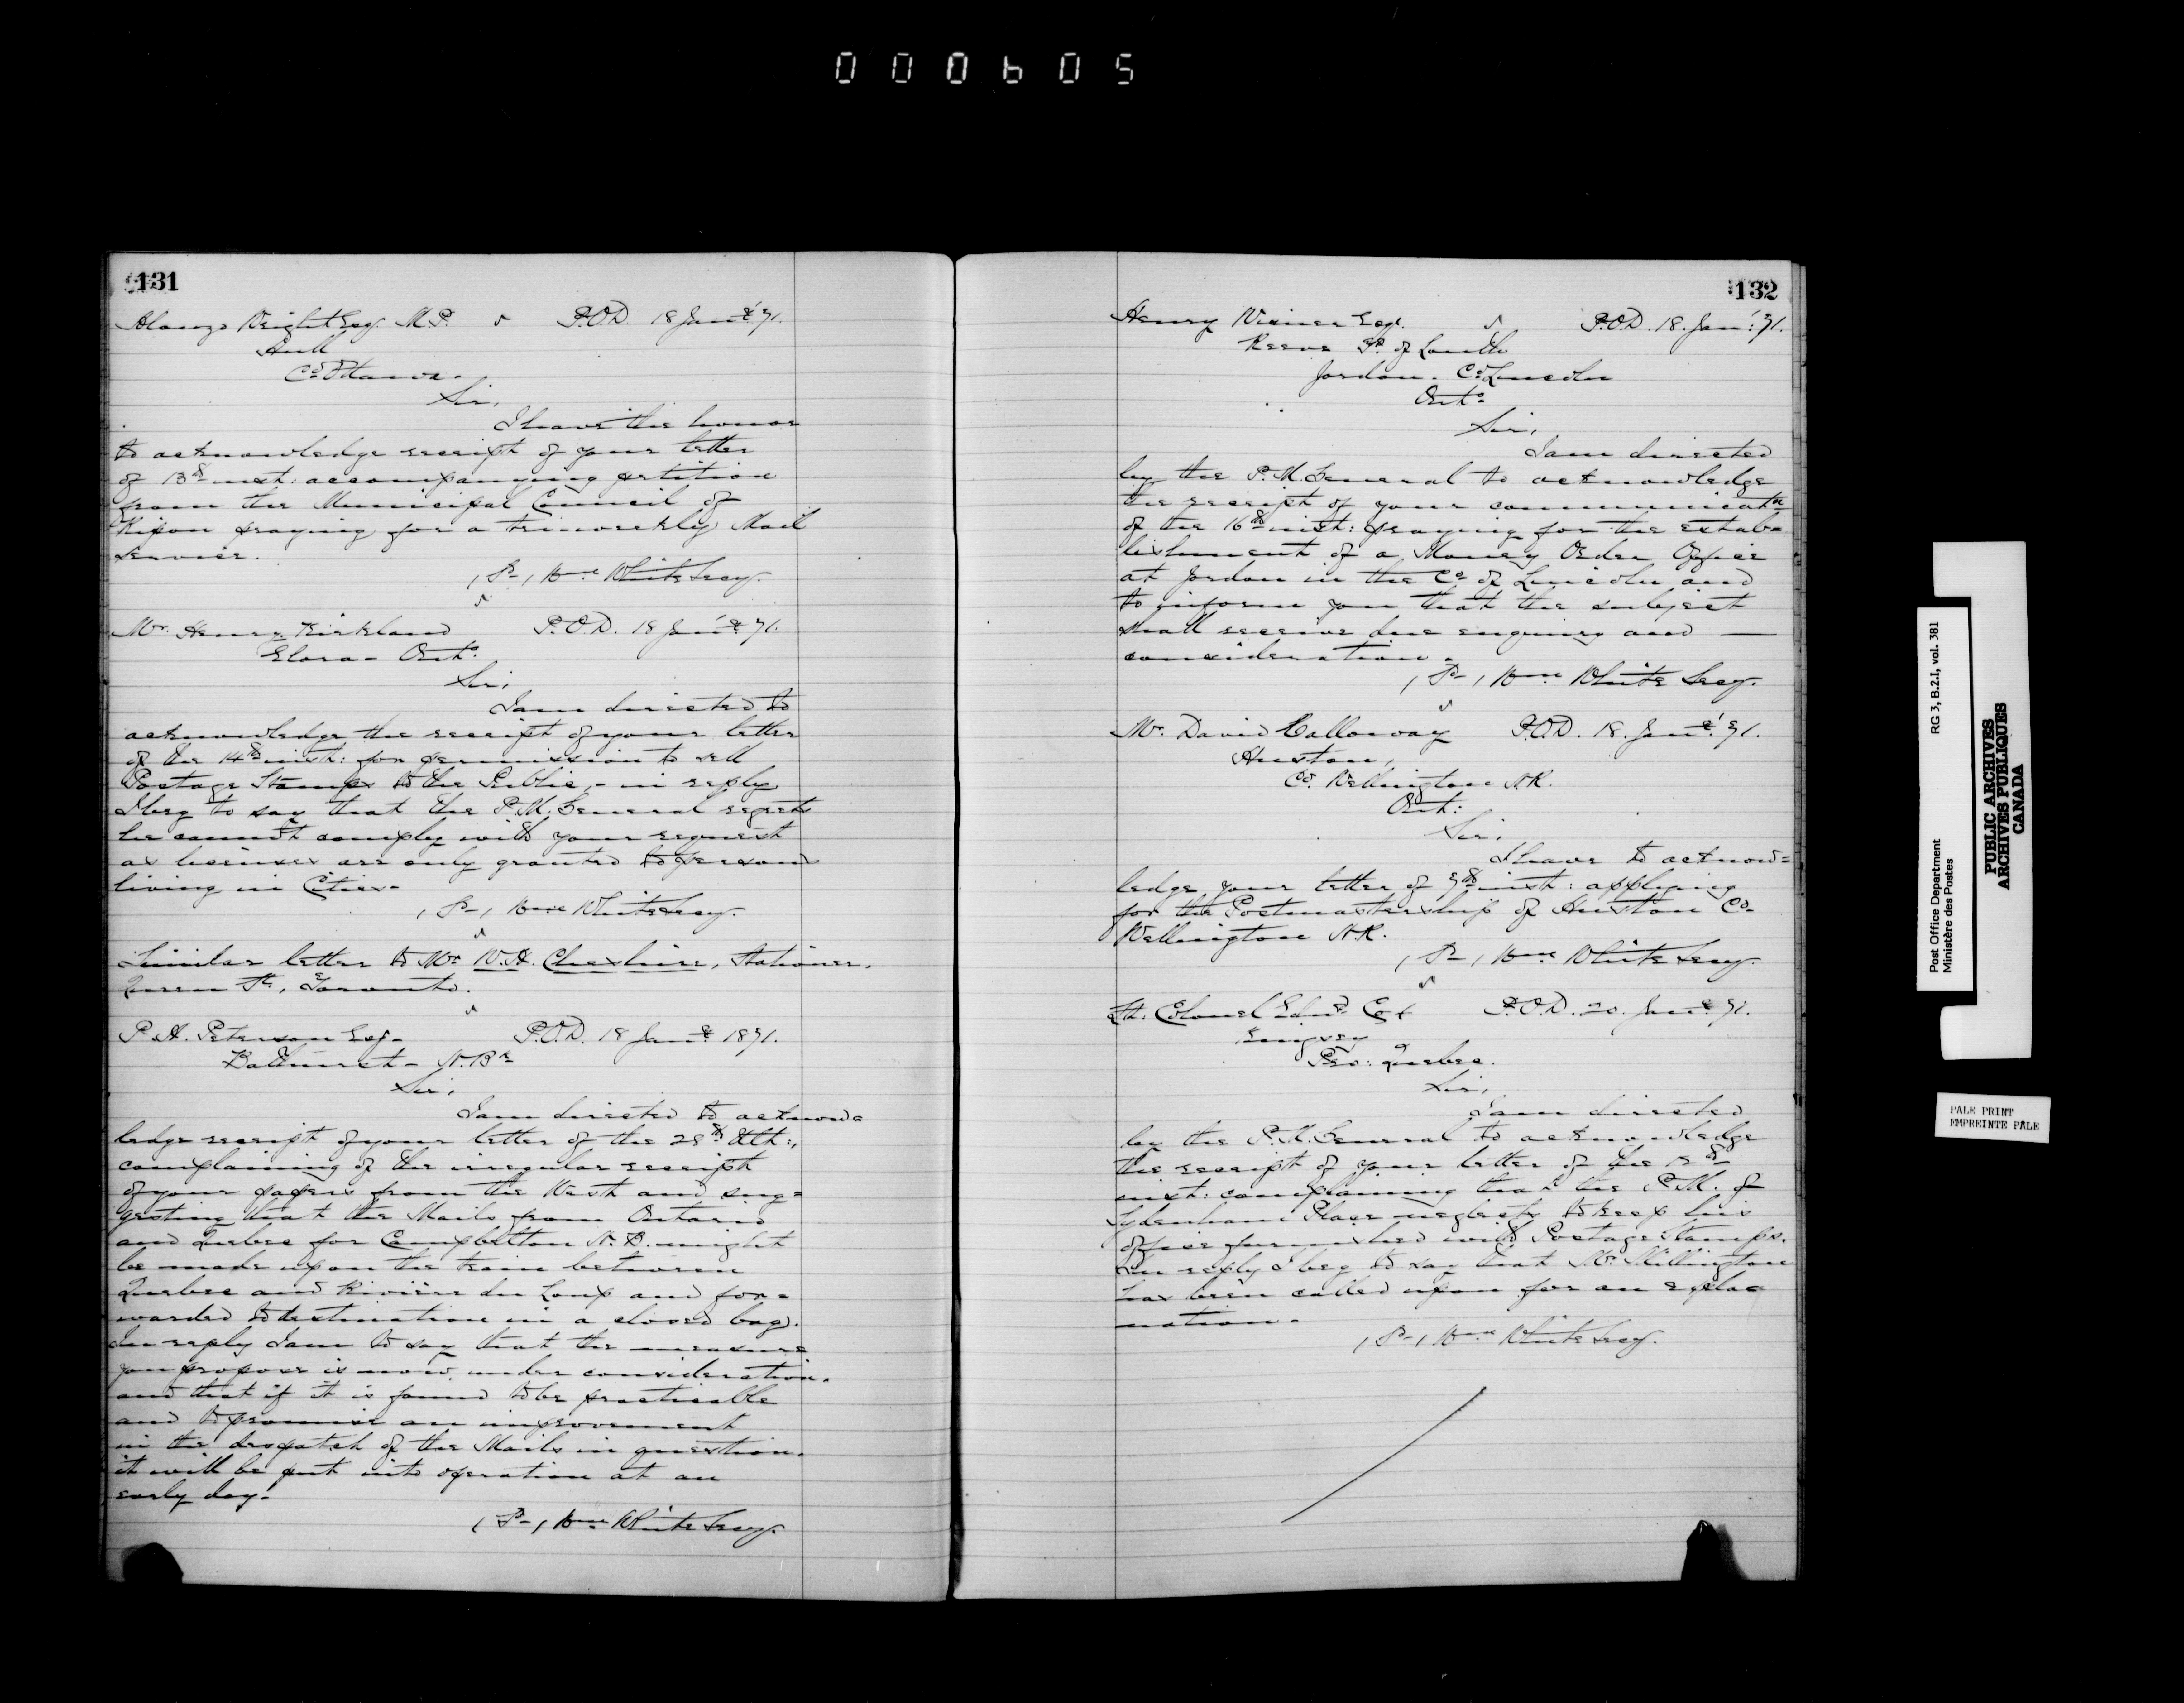 000605
131
Alonzo Wright Esq. M.P. P.O.D 18 Jany '71.
Hull
Co Ottawa.
Sir,
I have the honor
to acknowledge receipt of your letter
of 13th inst: accompanying petition
from the Municipal Council of
Ripon praying for a triweekly Mail
Service.
, Sd , Wm White Secy.
Mr. Henry Kirkland P.O.D. 18 Jany '71.
Elora - Onto.
Sir,
I am directed to
acknowledge the receipt of your letter
of the 14th inst: for permission to sell
Postage Stamps to the Public, - in reply
I beg to say that the P.M. General regrets
he cannot comply with your request
as licenses are only granted to persons
living in Cities -
, Sd , Wm White Secy.
Similar letter to Mr W.H. Cheshire, Stationer,
Queen St, Toronto.
P.H. Peterson Esq - P.O.D. 18 Jany 1871.
Bathurst - N.Bk
Sir,
I am directed to acknow=
ledge receipt of your letter of the 28th Ult:,
complaining of the irregular receipt
of your papers from the West and sug=
gesting that the Mails from Ontario
and Quebec for Campbelton N.B. might
be made up on the train between
Quebec and Rivière du Loup and for=
warded to destination in a closed bag.
In reply I am to say that the measure
you propose is now under consideration.
and that if it is found to be practicable
and to promise an improvement
in the despatch of the Mails in question.
it will be put into operation at an
early day.
, Sd , Wm White Secy.
132
Henry Wismer Esqr. P.O.D. 18. Jany: 71.
Reeve Tp. of Louth
Jordan. Co Lincoln
Onto
Sir,
I am directed
by the P.M. General to acknowledge
the receipt of your communicatn
of the 16th inst: praying for the estab=
lishment of a Money Order Office
at Jordan in the Co of Lincoln and
to inform you that the subject
shall receive due enquiry and —
consideration -
, Sd , Wm White Secy.
Mr. David Calloway P.O.D. 18. Jany. '71.
Huston,
Co. Wellington N.R.
Ont:
Sir,
I have to acknow=
ledge your letter of 7th inst: applying
for the Postmastership of Huston Co.
Wellington N.R.
, Sd , Wm White Secy.
Lt. Colonel Edwd Cox P.O.D. 20. Jany 71.
Kingsey
Pro: Quebec.
Sir,
I am directed
by the P.M. General to acknowledge
the receipt of your letter of the 12th
inst: complaining that the P.M. of
Sydenham Place neglects to keep his
office furnished with Postage Stamps.
In reply I beg to say that Mr Millington
has been called upon for an expla=
nation -
, Sd , Wm White Secy.
Post Office Department RG 3, B.2.I, vol. 381
Ministère des Postes
PUBLIC ARCHIVES
ARCHIVES PUBLIQUES
CANADA
PALE PRINT
EMPREINTE PÂLE